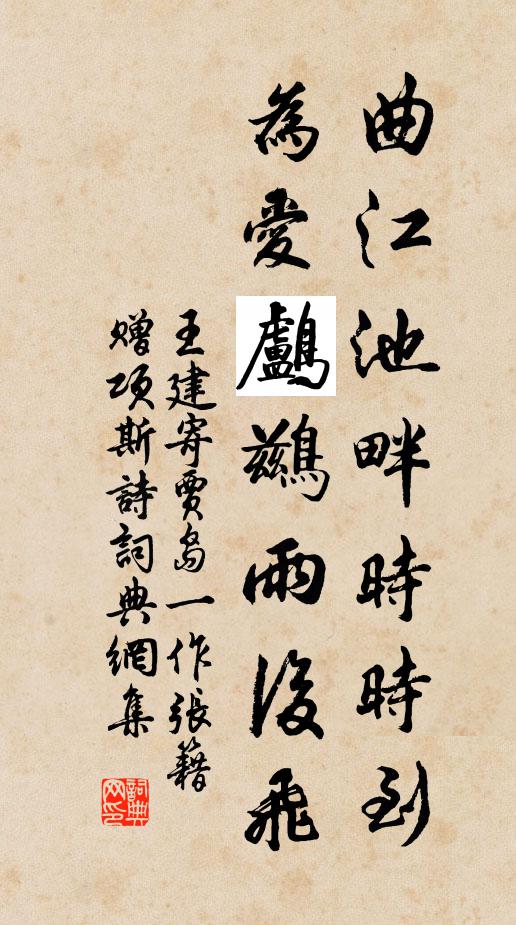 曲江池畔時時到
為愛鸕鷀雨後飛
王建寄賈島一作張籍
贈項斯詩詞典網集
詞典網印